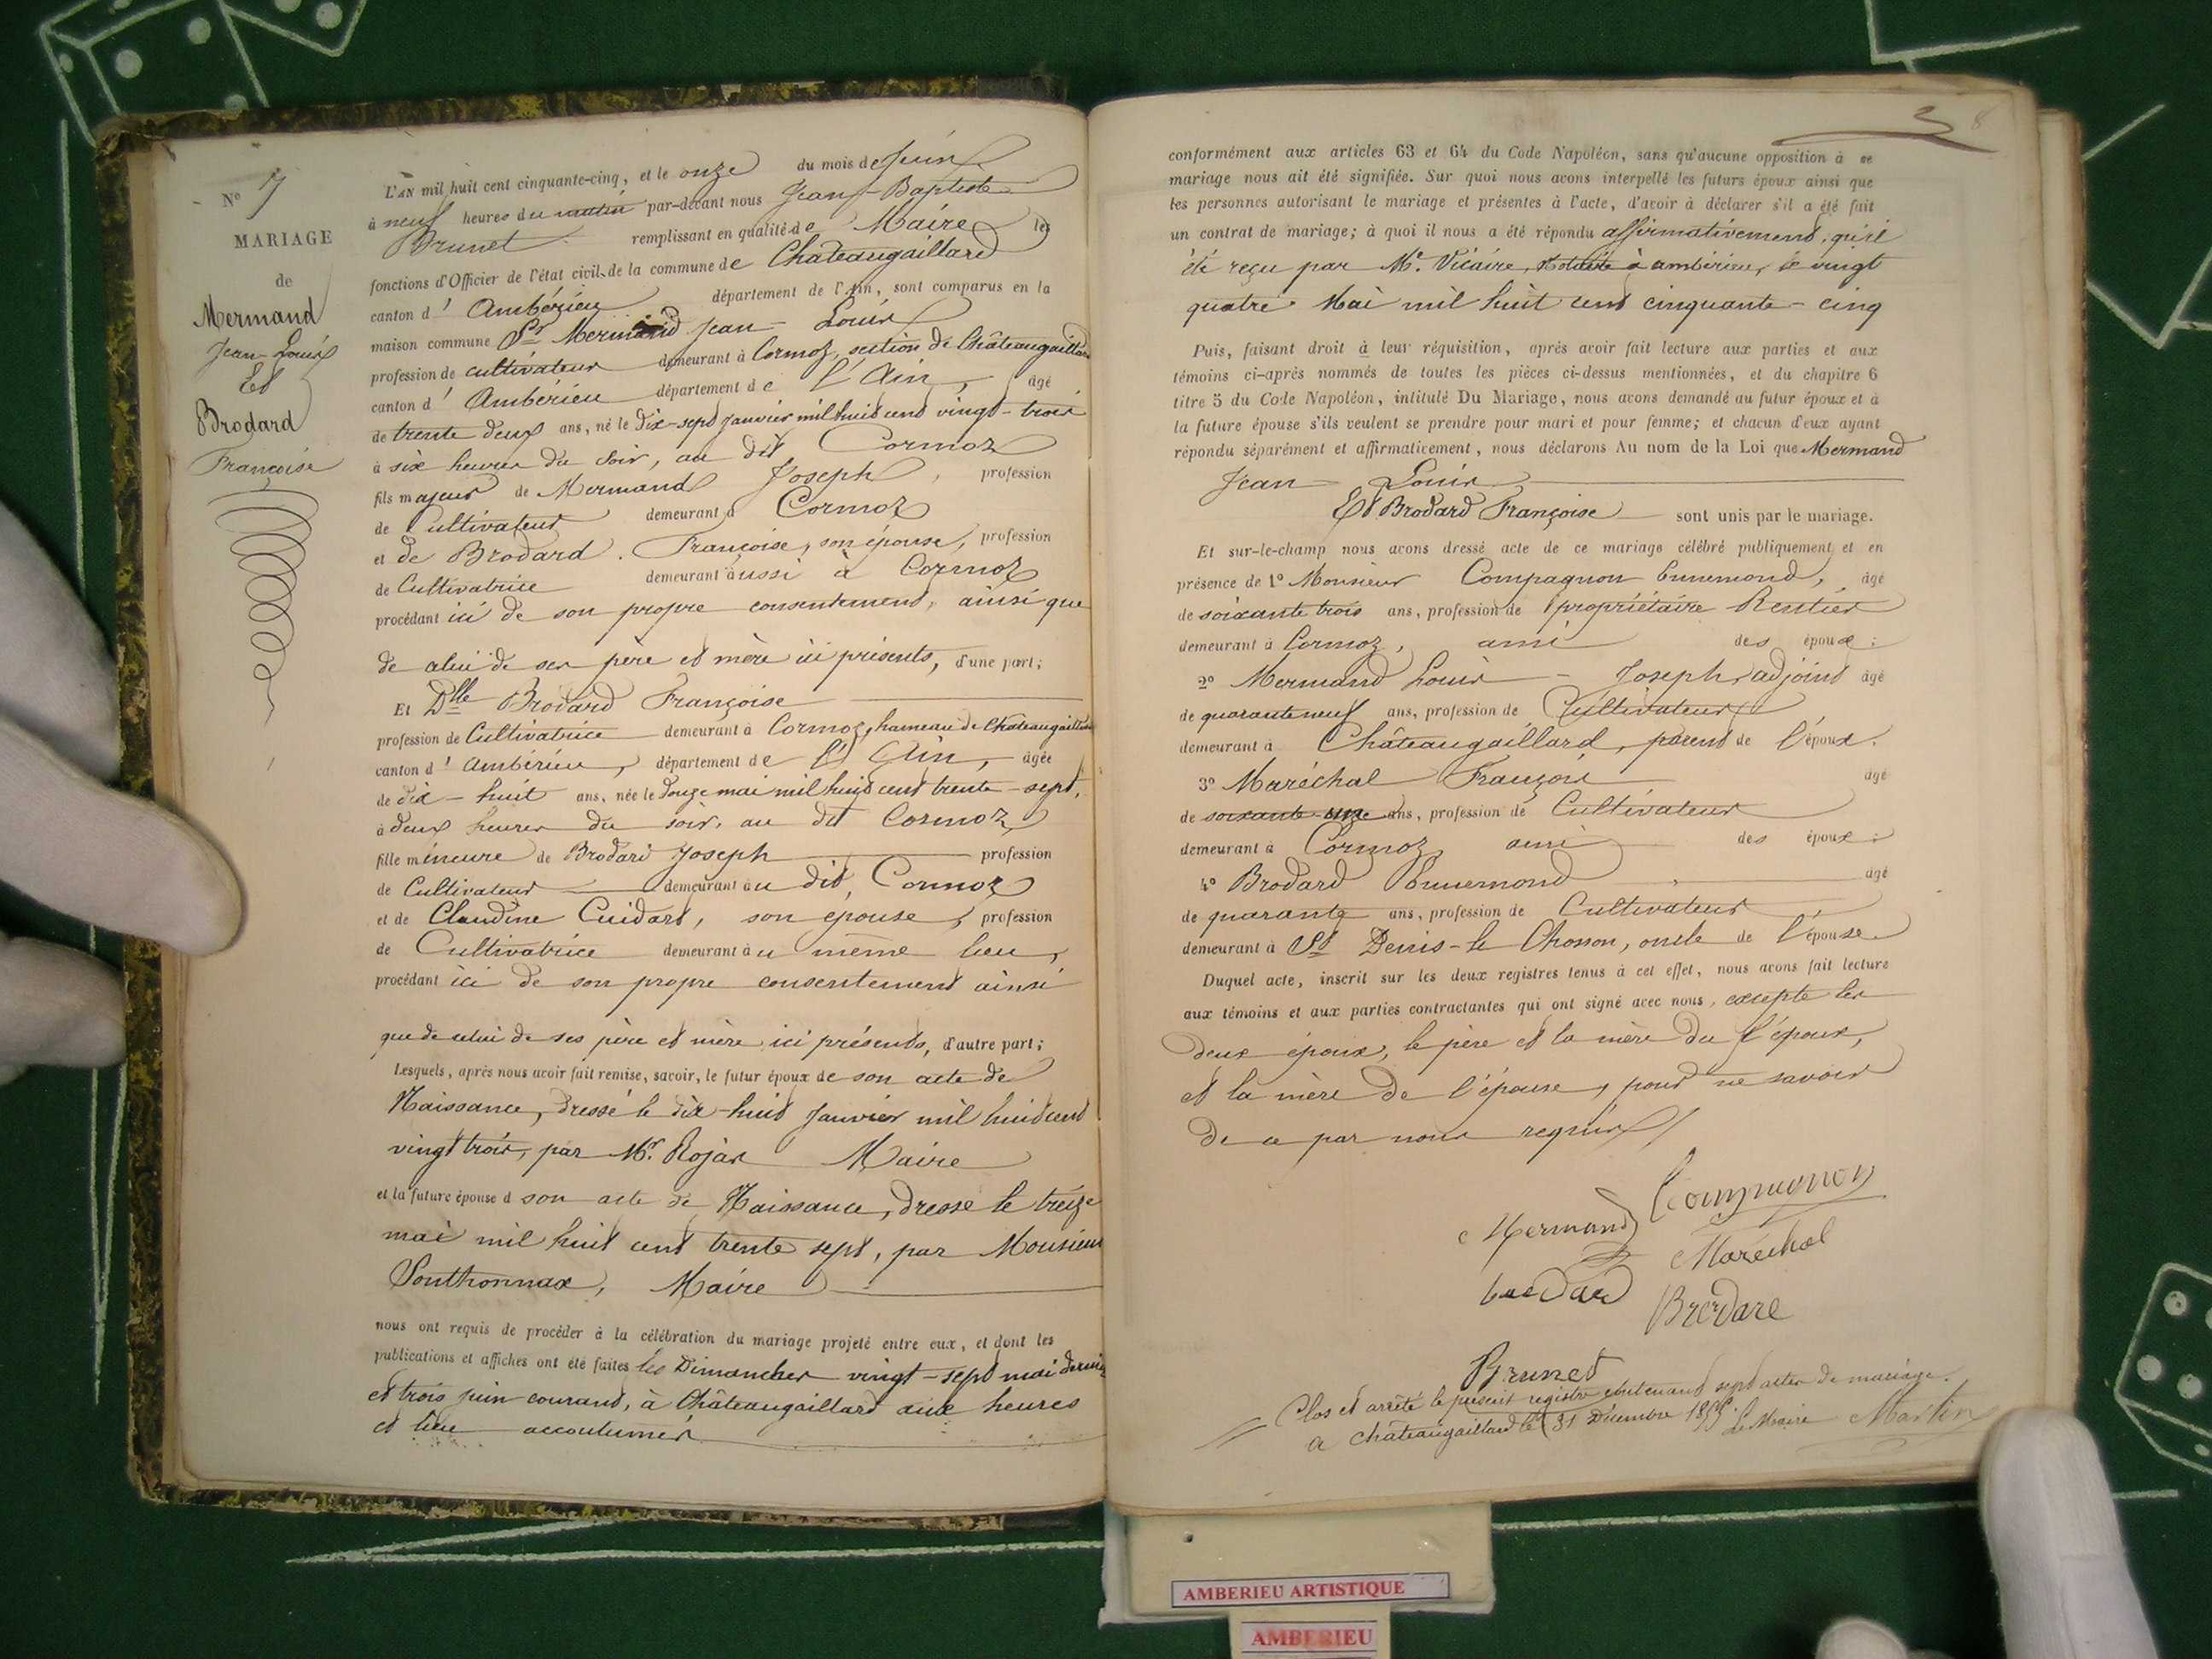 N° 7
MARIAGE
de
Mermand
Jean-Louis
Et
Brodard
Françoise
L'AN mil huit cent cinquante-cinq, et le onze du mois de Juin
à neuf heures du matin par-devant nous Jean-Baptiste
Brunet remplissant en qualité de Maire les
fonctions d'Officier de l'état civil de la commune de Châteaugaillard
canton d'Ambérieu département de l'Ain, sont comparus en la
maison commune Sr Mermand Jean-Louis
profession de cultivateur demeurant à Cormoz, section de Châteaugaillard
canton d'Ambérieu département de l'Ain, âgé
de trente deux ans, né le dix-sept janvier mil huit cent vingt-trois
à six heures du soir, au dit Cormoz
fils majeur de Mermand Joseph, profession
de Cultivateur demeurant à Cormoz
et de Brodard Françoise, son épouse, profession
de Cultivatrice demeurant aussi à Cormoz
procédant ici de son propre consentement, ainsi que
de celui de ses père et mère ici présents, d'une part;
Et Dlle Brodard Françoise
profession de Cultivatrice demeurant à Cormoz, hameau de Châteaugaillard
canton d'Ambérieu, département de l'Ain, âgée
de dix-huit ans, née le douze mai mil huit cent trente-sept,
à deux heures du soir, au dit Cormoz
fille mineure de Brodard Joseph profession
de Cultivateur demeurant au dit, Cormoz
et de Claudine Cuidard, son épouse, profession
de Cultivatrice demeurant au même lieu,
procédant ici de son propre consentement ainsi
que de celui de ses père et mère ici présents, d'autre part;
Lesquels, après nous avoir fait remise, savoir, le futur époux de son acte de
Naissance, dressé le dix-huit Janvier mil huit cent
vingt trois, par Mr. Rojas Maire
et la future épouse d son acte de Naissance, dressé le treize
mai mil huit cent trente sept, par Monsieur
Ponthonnax, Maire
nous ont requis de procéder à la célébration du mariage projeté entre eux, et dont les
publications et affiches ont été faites les Dimanches vingt-sept mai dernier
et trois juin courant, à Châteaugaillard aux heures
et lieu accoutumés
8
conformément aux articles 63 et 64 du Code Napoléon, sans qu'aucune opposition à ce
mariage nous ait été signifiée. Sur quoi nous avons interpellé les futurs époux ainsi que
les personnes autorisant le mariage et présentes à l'acte, d'avoir à déclarer s'il a été fait
un contrat de mariage; à quoi il nous a été répondu affirmativement, qu'il
été reçu par Me. Vicaire, Notaire à ambérieu, le vingt
quatre Mai mil huit cent cinquante-cinq
Puis, faisant droit à leur réquisition, après avoir fait lecture aux parties et aux
témoins ci-après nommés de toutes les pièces ci-dessus mentionnées, et du chapitre 6
titre 5 du Code Napoléon, intitulé Du Mariage, nous avons demandé au futur époux et à
la future épouse s'ils veulent se prendre pour mari et pour femme; et chacun d'eux ayant
répondu séparément et affirmativement, nous déclarons Au nom de la Loi que Mermand
Jean Louis
Et Brodard Françoise sont unis par le mariage.
Et sur-le-champ nous avons dressé acte de ce mariage célébré publiquement et en
présence de 1° Monsieur Compagnon Ennemond, âgé
de soixante trois ans, profession de propriétaire Rentier
demeurant à Cormoz, ami des époux;
2° Mermand Louis-Joseph, adjoint âgé
de quarante neuf ans, profession de Cultivateur
demeurant à Châteaugaillard, parent de l'époux.
3° Maréchal François âgé
de soixante-onze ans, profession de Cultivateur
demeurant à Cormoz ami des époux;
4° Brodard Ennemond âgé
de quarante ans, profession de Cultivateur
demeurant à St Denis-le Chosson, oncle de l'épouse
Duquel acte, inscrit sur les deux registres tenus à cet effet, nous avons fait lecture
aux témoins et aux parties contractantes qui ont signé avec nous, excepté les
deux époux, le père et la mère du l'époux,
et la mère de l'épouse, pour ne savoir
de ce par nous requis
Compagnon
Mermand
Maréchal
Brodard
Brunet
Clos et arrêté le présent registre contenant sept actes de mariage.
a Châteaugaillard le 31 Décembre 1855. Le Maire Martin
AMBERIEU ARTISTIQUE
AMBERIEU